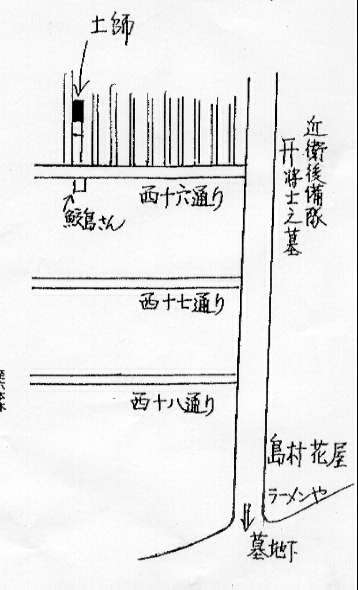 土師
近衛後備隊
将士之墓
西十六通り
鮫島さん
西十七通り
西十八通り
島村花屋
ラーメンや
墓地下